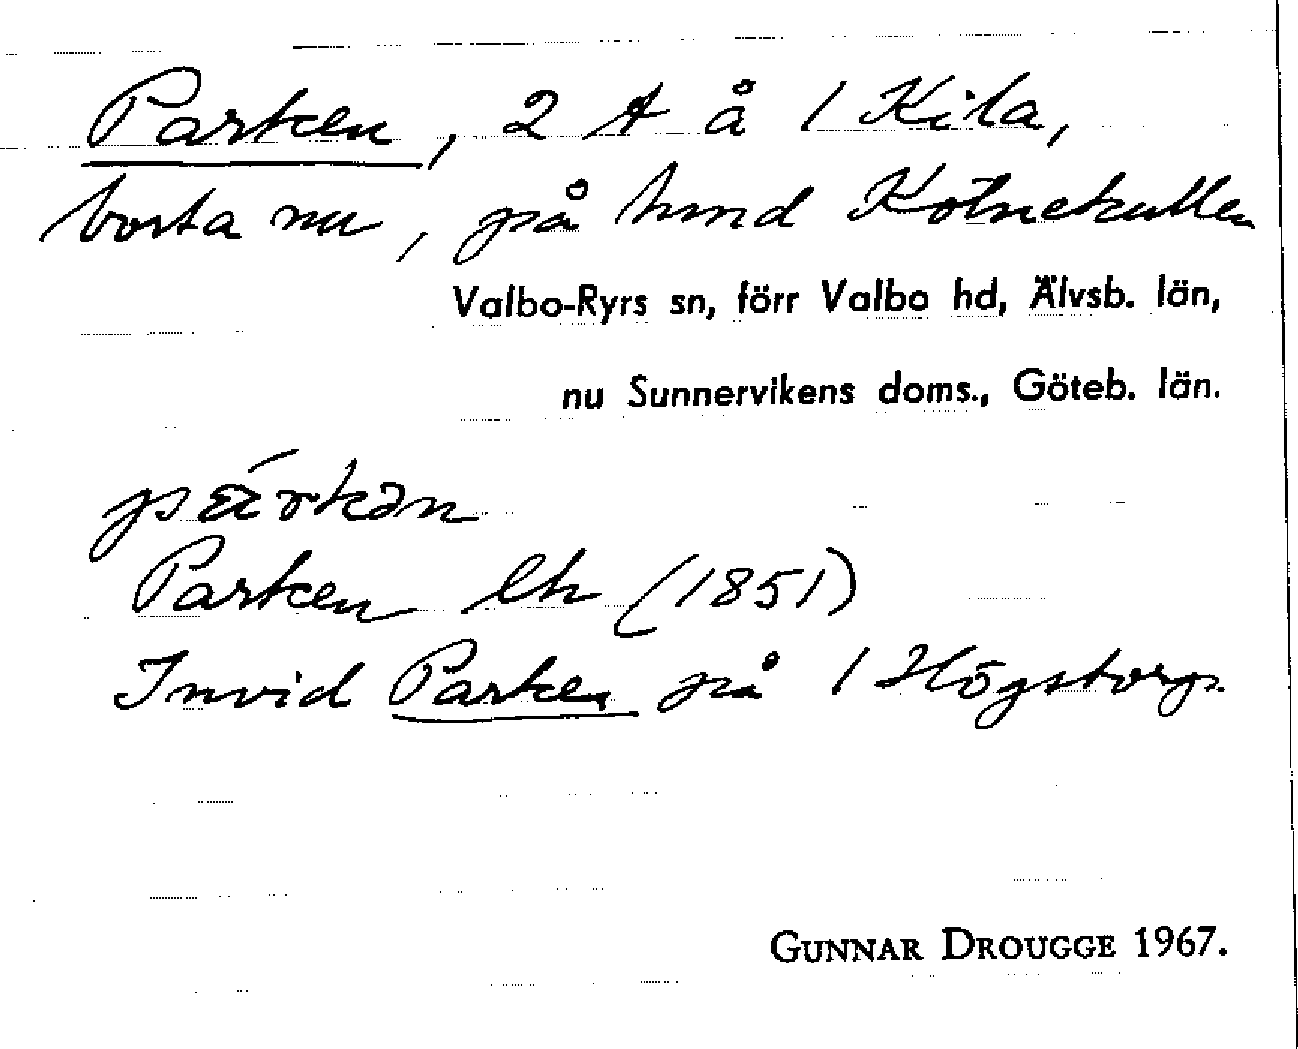 Parken, 2 t å 1 Kila,
borta nu, på hmd Kötnekullen
Valbo-Ryrs sn, förr Valbo hd, Älvsb. län,
nu Sunnervikens doms., Göteb. län.
Parken lh (1851)
Invid Parken på 1 Högstorp.
GUNNAR DROUGGE 1967.